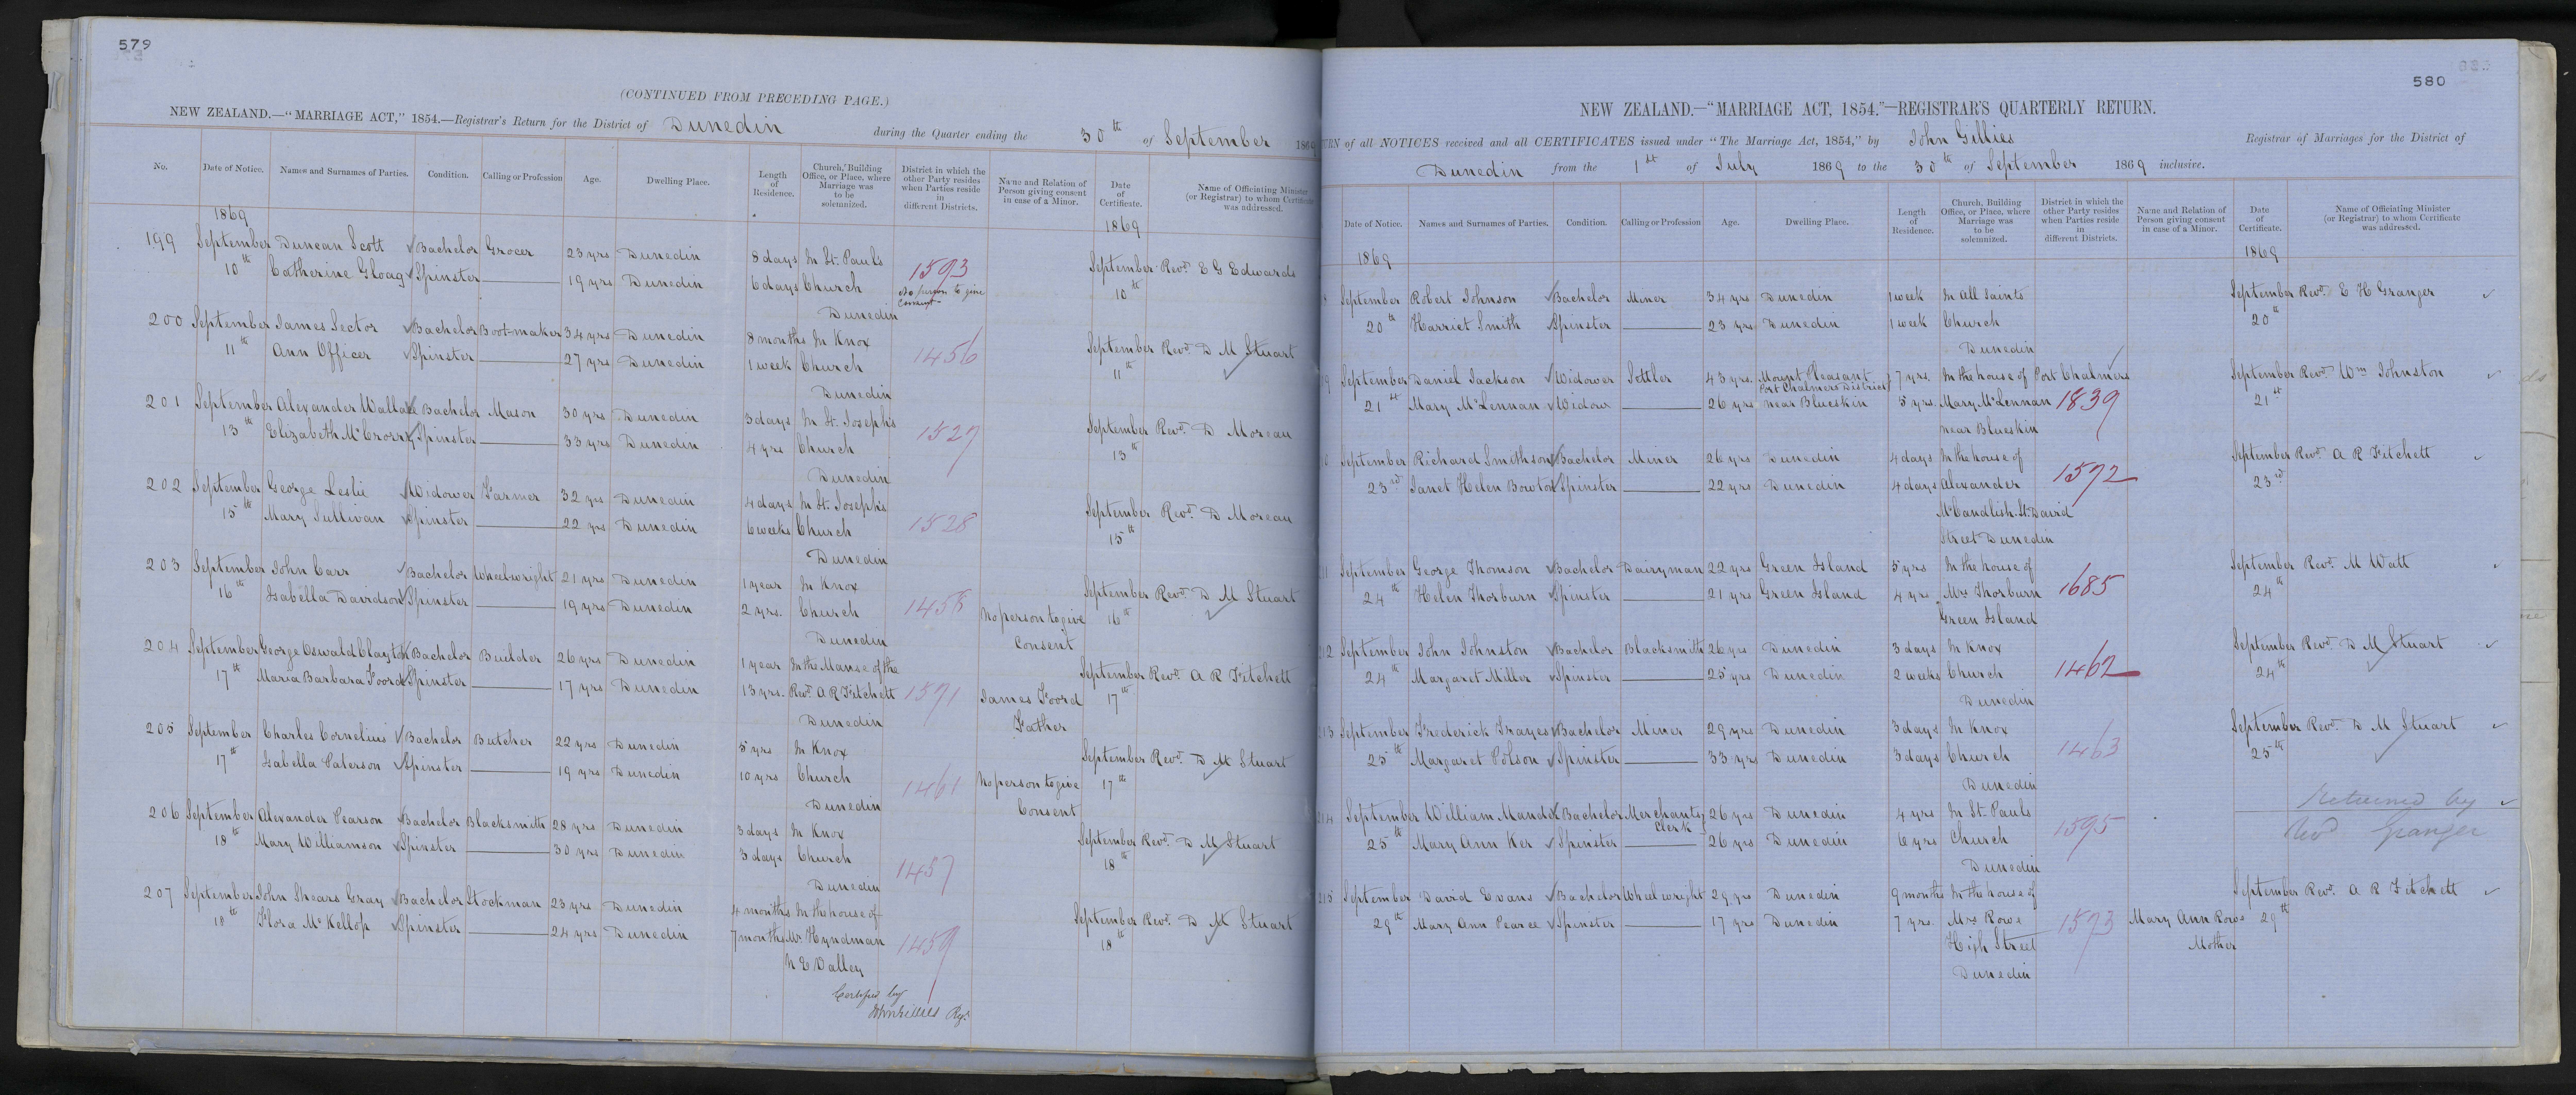 579
(CONTINUED FROM PRECEDING PAGE.)
NEW ZEALAND.—"MARRIAGE ACT," 1854.—Registrar's Return for the District of Dunedin during the Quarter ending the 30th of September 1869
No. Date of Notice. Names and Surnames of Parties. Condition. Calling or Profession Age. Dwelling Place. Length of Residence. Church, Building Office, or Place, where Marriage was to be solemnized. District in which the other Party resides when Parties reside in different Districts. Name and Relation of Person giving consent in case of a Minor. Date of Certificate. Name of Officiating Minister (or Registrar) to whom Certificate was addressed.
1869 1869
199 September Duncan Scott Bachelor Grocer 23 yrs Dunedin 8 days In St. Pauls 1593 September Revd. E G Edwards
10th Catherine Gloag Spinster 19 yrs Dunedin 6 days Church No person to give consent 10th
Dunedin
200 September James Sector Bachelor Boot-maker 34 yrs Dunedin 8 months In Knox 1456 September Revd. D M Stuart
11th Ann Officer Spinster 27 yrs Dunedin 1 week Church 11th
Dunedin
201 September Alexander Wallace Bachelor Mason 30 yrs Dunedin 3 days In St. Josephs 1527 September Revd. D Moreau
13th Elizabeth McCrorry Spinster 33 yrs Dunedin 4 yrs Church 13th
Dunedin
202 September George Leslie Widower Farmer 32 yrs Dunedin 4 days In St. Josephs 1528 September Revd. D Moreau
15th Mary Sullivan Spinster 22 yrs Dunedin 6 weeks Church 15th
Dunedin
203 September John Carr Bachelor Wheelwright 21 yrs Dunedin 1 year In Knox 1458 September Revd. D M Stuart
16th Isabella Davidson Spinster 19 yrs Dunedin 2 yrs. Church No person to give 16th
Dunedin Consent
204 September George Oswald Clayton Bachelor Builder 26 yrs Dunedin 1 year In the Manse of the September Revd. A R Fitchett
17th Maria Barbara Foord Spinster 17 yrs Dunedin 13 yrs. Revd. A R Fitchett 1571 James Foord 17th
Dunedin Father
205 September Charles Cornelius Bachelor Butcher 22 yrs Dunedin 5 yrs In Knox September Revd. D M Stuart
17th Isabella Paterson Spinster 19 yrs Dunedin 10 yrs Church 1461 No person to give 17th
Dunedin Consent
206 September Alexander Pearson Bachelor Blacksmith 28 yrs Dunedin 3 days In Knox September Revd. D M Stuart
18th Mary Williamson Spinster 30 yrs Dunedin 3 days Church 1457 18th
Dunedin
207 September John Shears Gray Bachelor Stockman 23 yrs Dunedin 4 months In the house of September Revd. D M Stuart
18th Flora McKellop Spinster 24 yrs Dunedin 7 months Mr. Hyndman 1459 18th
N E Valley
Certified by
John Gillies Regr.
580
NEW ZEALAND.—"MARRIAGE ACT, 1854."—REGISTRAR'S QUARTERLY RETURN.
URN of all NOTICES received and all CERTIFICATES issued under "The Marriage Act, 1854," by John Gillies Registrar of Marriages for the District of
Dunedin from the 1st of July 1869 to the 30th of September 1869 inclusive.
Date of Notice. Names and Surnames of Parties. Condition. Calling or Profession Age. Dwelling Place. Length of Residence. Church, Building Office, or Place, where Marriage was to be solemnized. District in which the other Party resides when Parties reside in different Districts. Name and Relation of Person giving consent in case of a Minor. Date of Certificate. Name of Officiating Minister (or Registrar) to whom Certificate was addressed.
1869 1869
8 September Robert Johnson Bachelor Miner 34 yrs Dunedin 1 week In All Saints September Revd. E H Granger
20th Harriet Smith Spinster 23 yrs Dunedin 1 week Church 20th
Dunedin
9 September Daniel Jackson Widower Settler 43 yrs. Mount Pleasant Port Chalmers District 7 yrs. In the house of Port Chalmers September Revd. Wm Johnston
21st Mary McLennan Widow 26 yrs near Blueskin 5 yrs. Mary McLennan 1839 21st
near Blueskin
September Richard Smithson Bachelor Miner 26 yrs Dunedin 4 days In the house of 1572 September Revd. A R Fitchett
23rd Janet Helen Bowton Spinster 22 yrs Dunedin 4 days Alexander 23rd
McCandlish. St. David
Street Dunedin
11 September George Thomson Bachelor Dairyman 22 yrs Green Island 5 yrs In the house of September Revd. M Watt
24th Helen Thorburn Spinster 21 yrs Green Island 4 yrs Mrs Thorburn 1685 24th
Green Island
212 September John Johnston Bachelor Blacksmith 26 yrs Dunedin 3 days In Knox September Revd. D M Stuart
24th Margaret Miller Spinster 25 yrs Dunedin 2 weeks Church 1462 24th
Dunedin
213 September Frederick Trayes Bachelor Miner 29 yrs Dunedin 3 days In Knox September Revd. D M Stuart
25th Margaret Polson Spinster 33 yrs Dunedin 3 days Church 1463 25th
Dunedin
214 September William Mando Bachelor Merchants Clerk 26 yrs Dunedin 4 yrs In St. Pauls Returned by
25th Mary Ann Ker Spinster 26 yrs Dunedin 6 yrs Church 1595 Revd Granger
Dunedin
215 September David Evans Bachelor Wheelwright 29 yrs Dunedin 9 months In the house of September Revd. A R Fitchett
29th Mary Ann Pearce Spinster 17 yrs Dunedin 7 yrs. Mrs Rowe 1573 Mary Ann Rowe 29th
High Street Mother
Dunedin